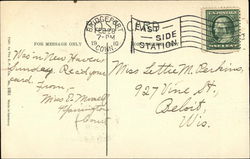 POST CARD
BRIDGEPORT
FEB 28
7-PM
CONN.
EAST
SIDE
STATION
FOR MESSAGE ONLY
Was in New Haven
Sunday. Read your
card.
From,
Miss E.
Conn.
Miss Lettie M. Perkins,
927 Vine St,
Beloit,
Wis.